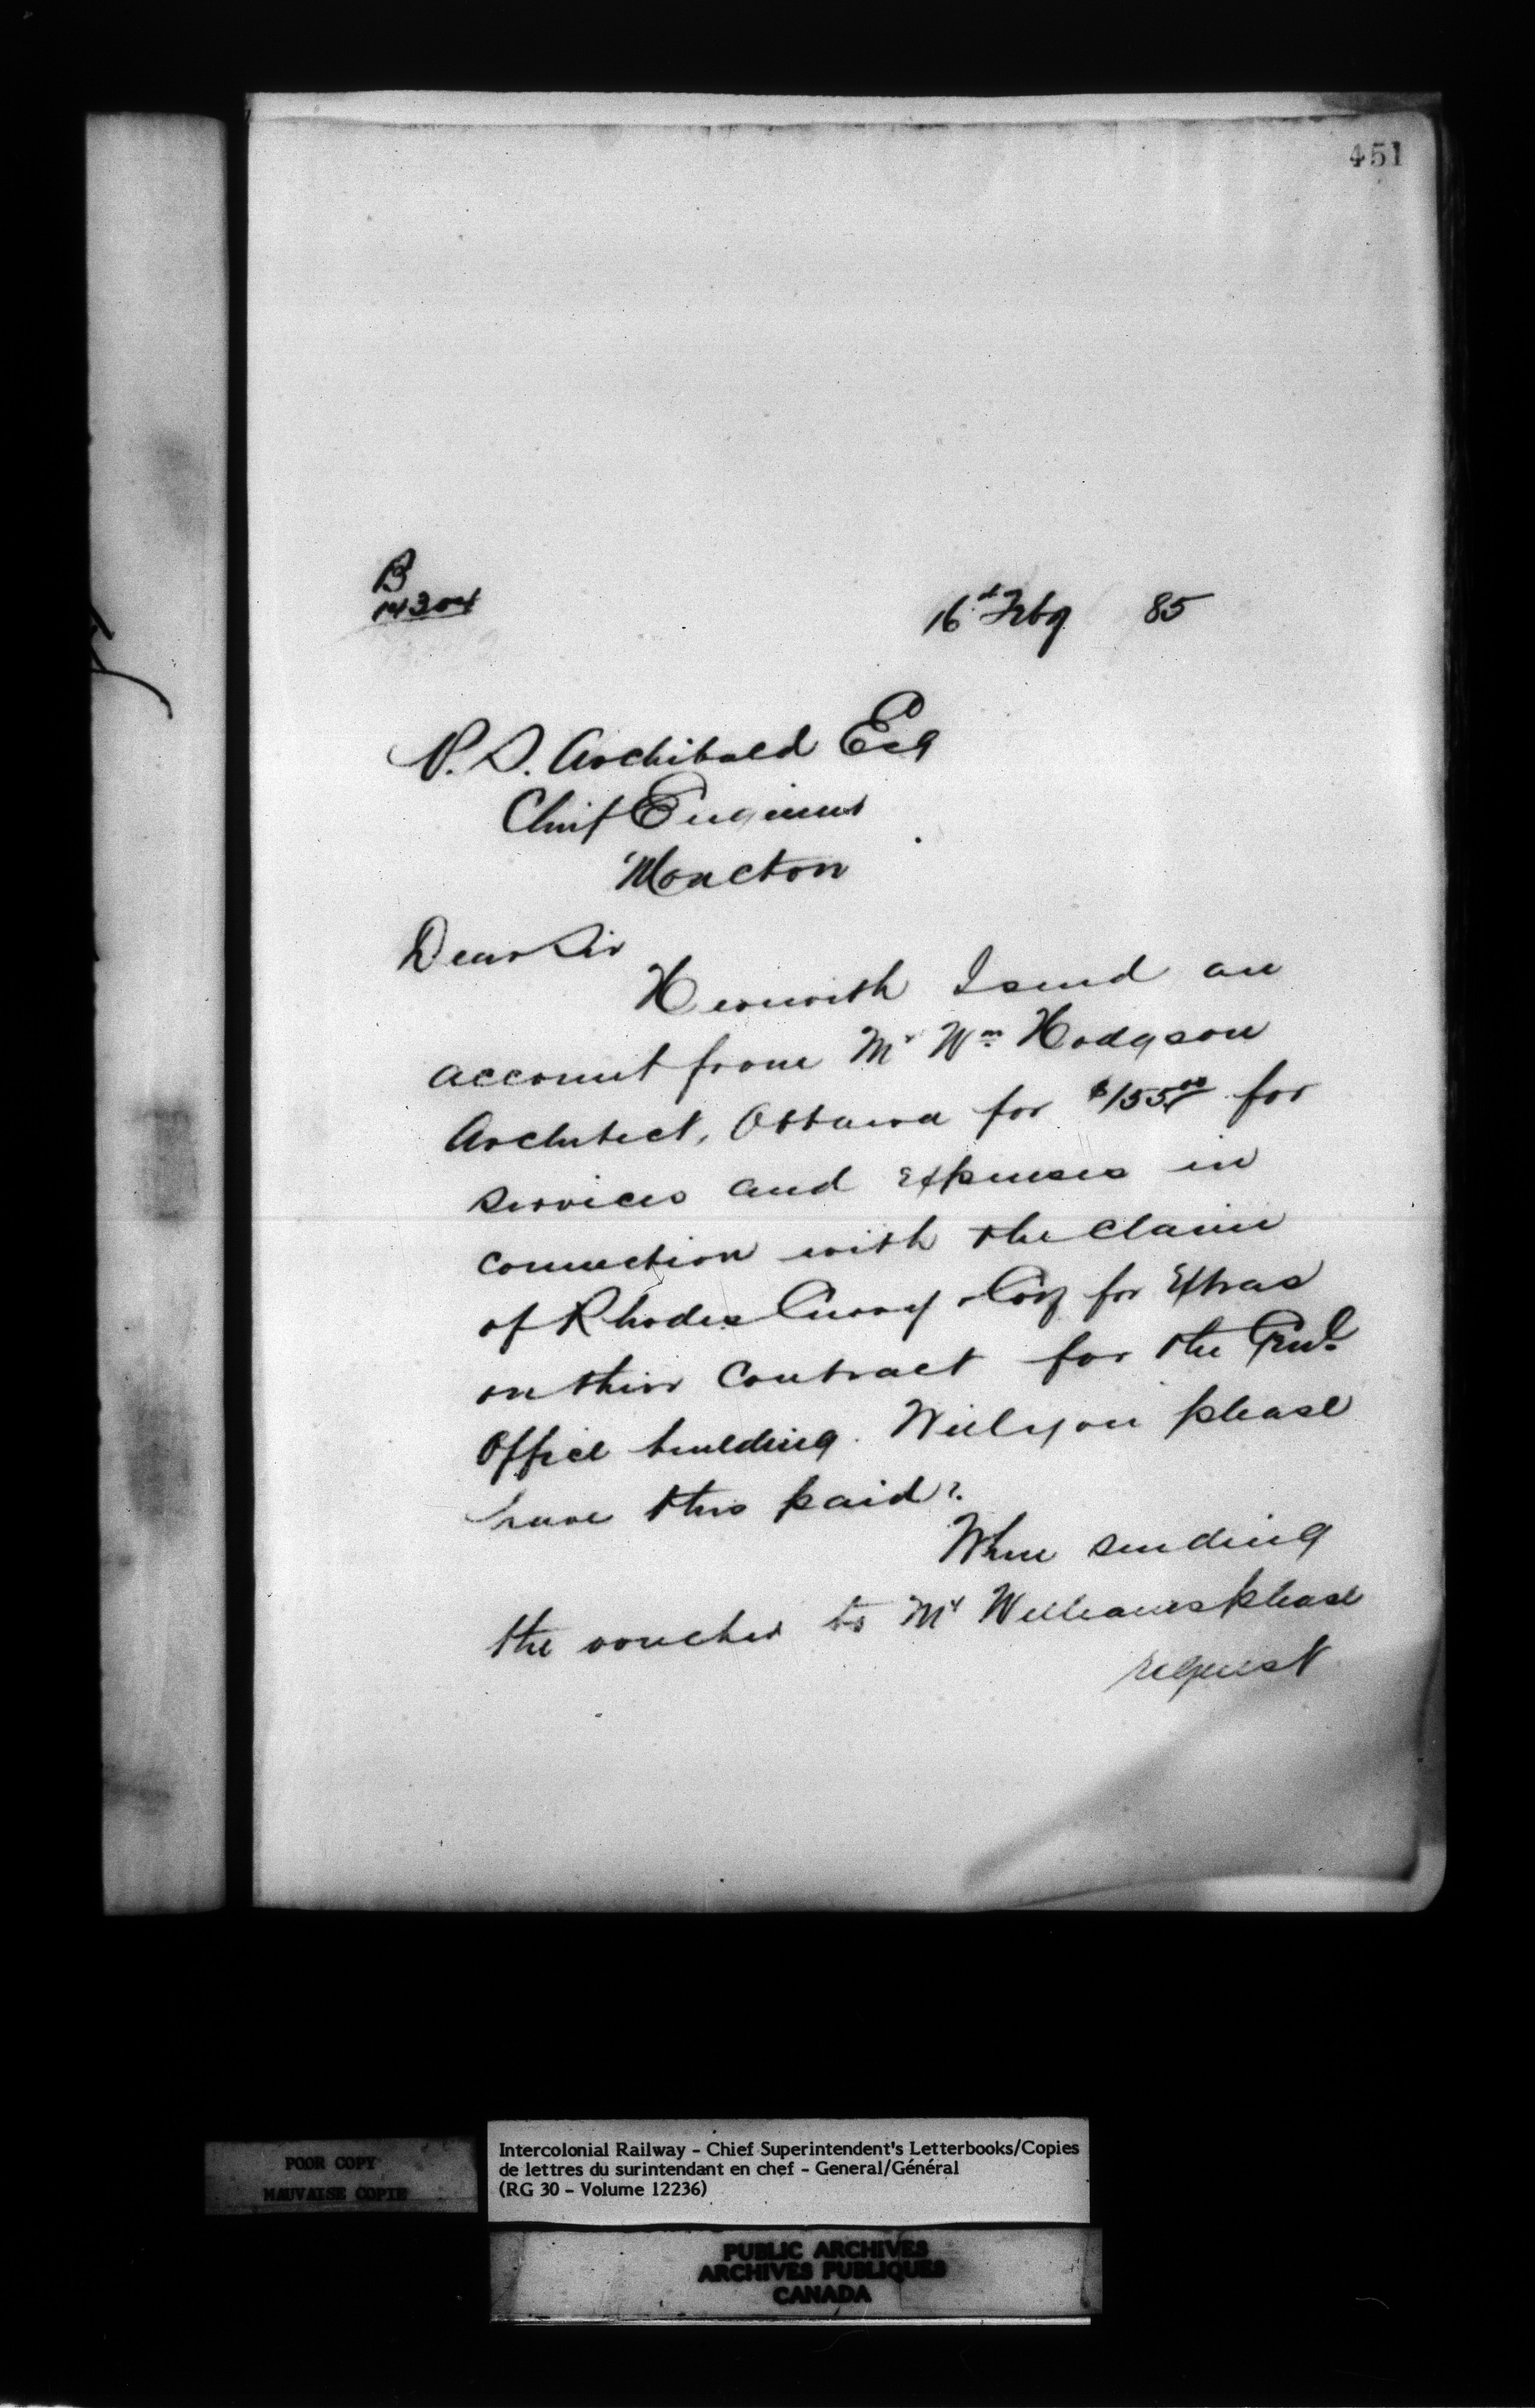 451
B
14304
16th Feby 85
P. S. Archibald Esq
Chief Engineer
Moncton
Dear Sir
Herewith I send an
account from Mr Wm Hodgson
Architect, Ottawa for $155.00 for
services and expenses in
connection with the claim
of Rhodes Curry & Coy for Extras
on their contract for the Genl
Office building. Will you please
have this paid?
When sending
the voucher to Mr Williams please
request
POOR COPY
MAUVAISE COPIE
Intercolonial Railway - Chief Superintendent's Letterbooks/Copies
de lettres du surintendant en chef - General/Général
(RG 30 - Volume 12236)
PUBLIC ARCHIVES
ARCHIVES PUBLIQUES
CANADA